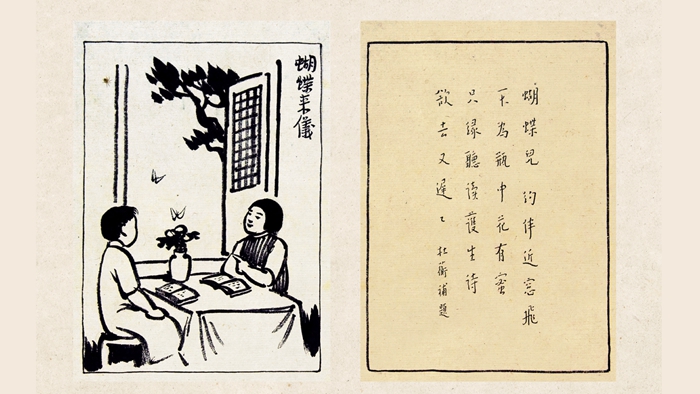 蝴蝶来儀
蝴蝶兒 約伴近窓飛
不為瓶中花有蜜
只緣聽讀護生詩
欲去又遲遲 杜蘅補題